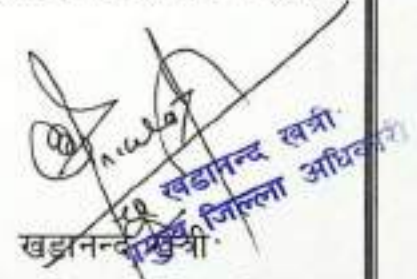 खडानन्द खत्री
प्रमुख जिल्ला अधिकारी
खडानन्द खत्री